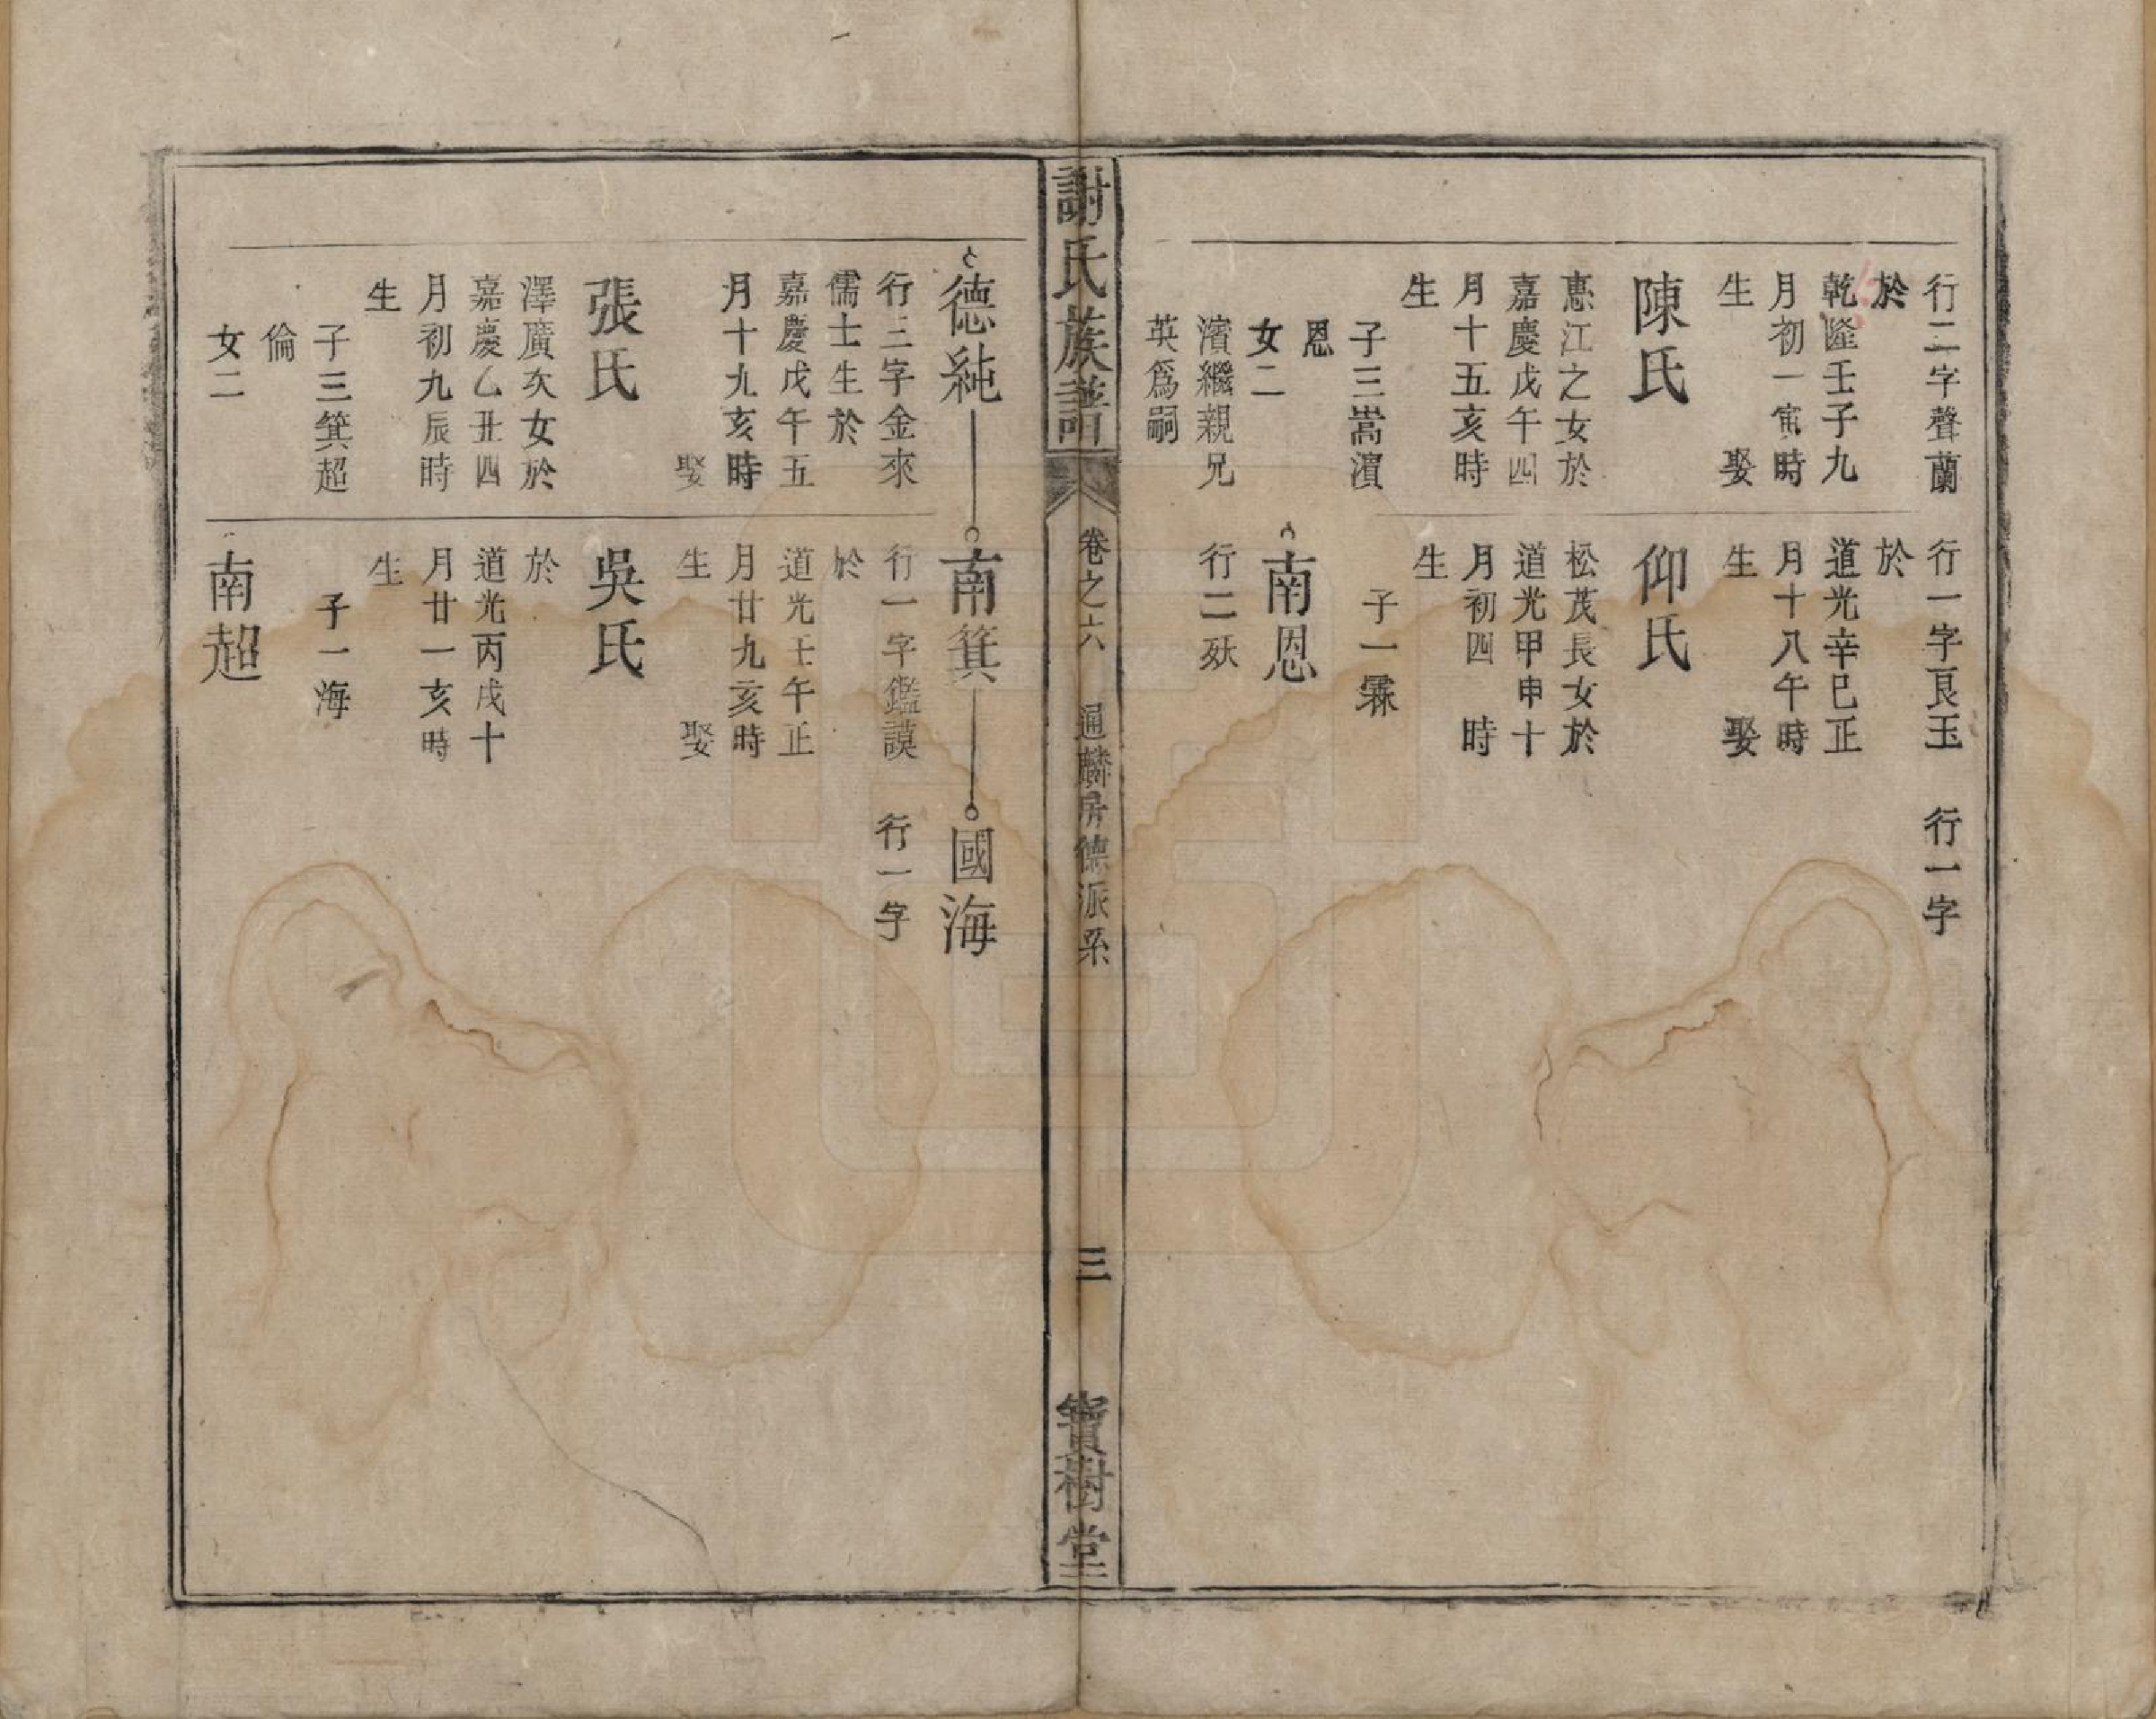 行二字聲蘭
於
乾隆壬子九
月初一寅時
生　　　娶
陳氏
惠江之女於
嘉慶戊午四
月十五亥時
生
子三嵩濱
恩
女二
濱繼親兄
英爲嗣
行一字艮玉
於
道光辛巳正
月十八午時
生　　　娶
仰氏
松茂長女於
道光甲申十
月初四　時
生
子一霖
南恩
行二殀
行一字
謝氏族譜
卷之六
通麟房德派系
三
寶樹堂
德純
行三字金來
儒士生於
嘉慶戊午五
月十九亥時
娶
張氏
澤廣次女於
嘉慶乙丑四
月初九辰時
生
子三箕超
倫
女二
南箕
行一字鑑謨
於
道光壬午正
月廿九亥時
生　　　娶
吳氏
於
道光丙戌十
月廿一亥時
生
子一海
南超
國海
行一字